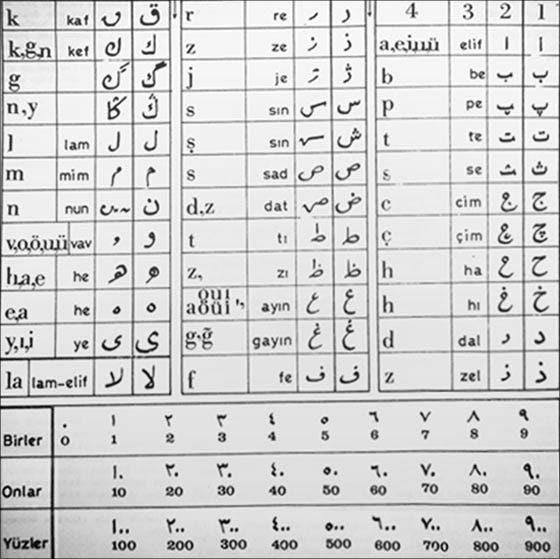 k kaf ق ق r re ر ر 4 3 2 1
k,g,n kef ك ك z ze ز ز a,e,ı,i,u,ü elif ا ا
g گ گ j je ژ ژ b be ب ب
n,y ڭ ڭ s sın س س p pe پ پ
l lam ل ل ş sın ش ش t te ت ت
m mim م م s sad ص ص s se ث ث
n nun ن ن d,z dat ض ض c cim ج ج
v,o,ö,u,ü vav و و t tı ط ط ç çim چ چ
h,a,e he ه ه z, zı ظ ظ h ha ح ح
e,a he ه ه ayın ع ع h hı خ خ
y,ı,i ye ى ى g,ğ gayın غ غ d dal د د
la lam-elif لا لا f fe ف ف z zel ذ ذ
٠ ١ ٢ ٣ ٤ ٥ ٦ ٧ ٨ ٩
Birler 0 1 2 3 4 5 6 7 8 9
١٠ ٢٠ ٣٠ ٤٠ ٥٠ ٦٠ ٧٠ ٨٠ ٩٠
Onlar 10 20 30 40 50 60 70 80 90
١٠٠ ٢٠٠ ٣٠٠ ٤٠٠ ٥٠٠ ٦٠٠ ٧٠٠ ٨٠٠ ٩٠٠
Yüzler 100 200 300 400 500 600 700 800 900